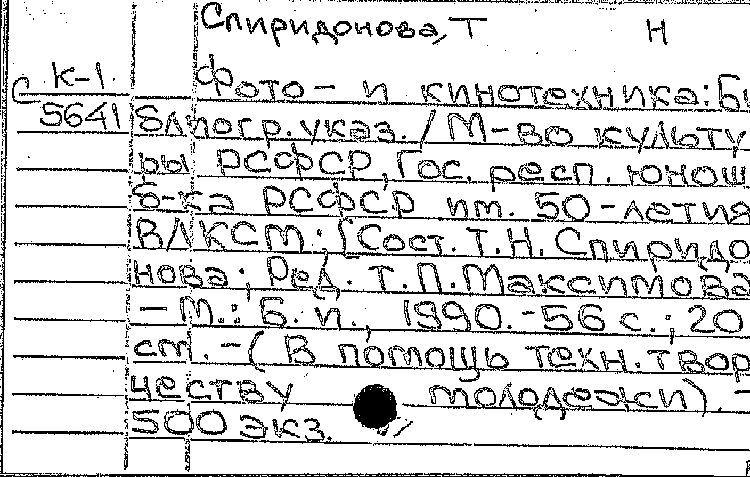 Спиридонова, Т Н
К-1 Фото- и кинотехника: Би
5641 блиогр. указ. / М-во культу
ры РСФСР, Гос. респ. юнош.
б-ка РСФСР им. 50-летия
ВЛКСМ; [Сост. Т. Н. Спиридо
нова; Ред. Т. П. Максимова
- М.: Б. и., 1990. - 56 с.; 20
см. - (В помощь техн. твор
честву молодежи). -
500 экз.